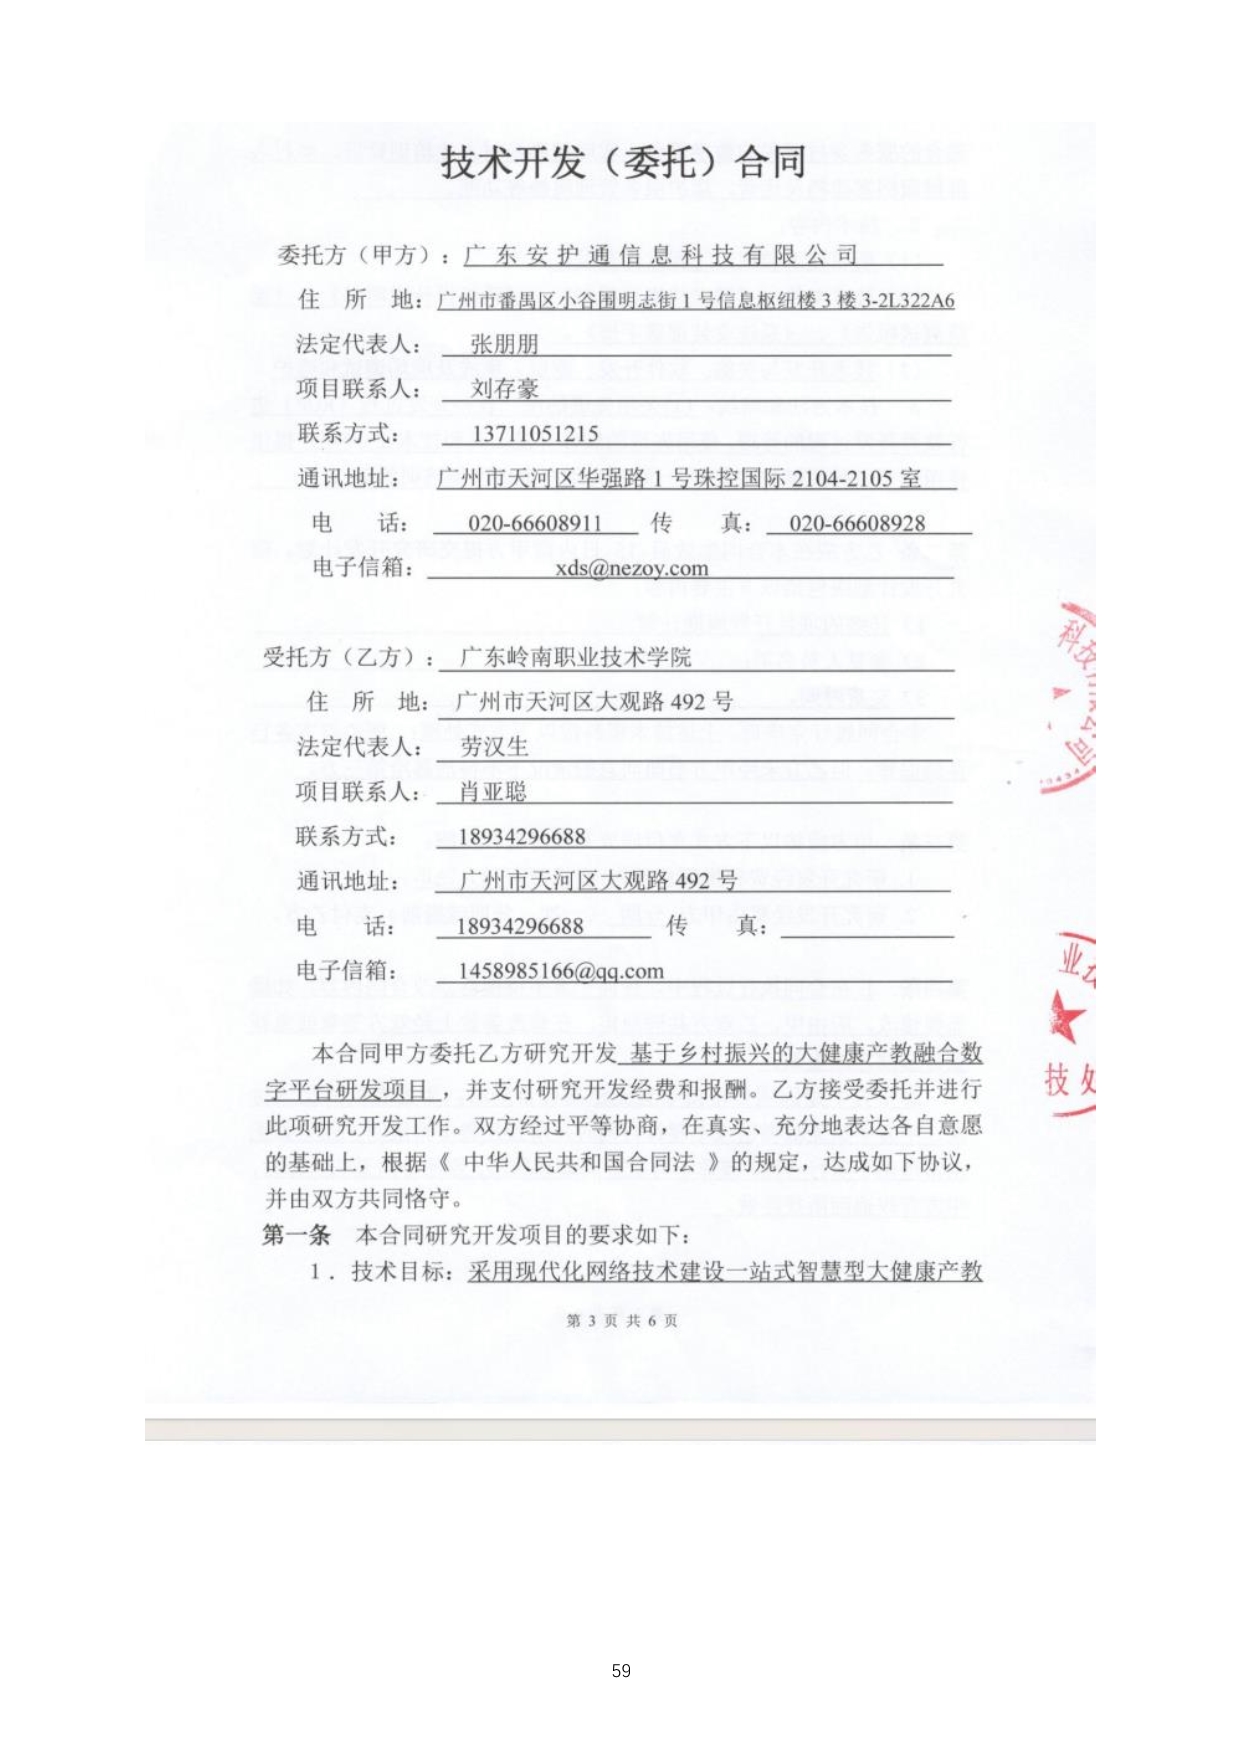 技术开发（委托）合同
委托方（甲方）：广东安护通信息科技有限公司
住 所 地：广州市番禺区小谷围明志街 1 号信息枢纽楼 3 楼 3-2L322A6
法定代表人： 张朋朋
项目联系人： 刘存豪
联系方式： 13711051215
通讯地址： 广州市天河区华强路 1 号珠控国际 2104-2105 室
电 话： 020-66608911 传 真： 020-66608928
电子信箱： xds@nezoy.com
受托方（乙方）： 广东岭南职业技术学院
住 所 地： 广州市天河区大观路 492 号
法定代表人： 劳汉生
项目联系人： 肖亚聪
联系方式： 18934296688
通讯地址： 广州市天河区大观路 492 号
电 话： 18934296688 传 真：
电子信箱： 1458985166@qq.com
本合同甲方委托乙方研究开发 基于乡村振兴的大健康产教融合数
字平台研发项目 ，并支付研究开发经费和报酬。乙方接受委托并进行
此项研究开发工作。双方经过平等协商，在真实、充分地表达各自意愿
的基础上，根据《 中华人民共和国合同法 》的规定，达成如下协议，
并由双方共同恪守。
第一条 本合同研究开发项目的要求如下：
1．技术目标：采用现代化网络技术建设一站式智慧型大健康产教
第 3 页 共 6 页
科技
司
业技
技处
59